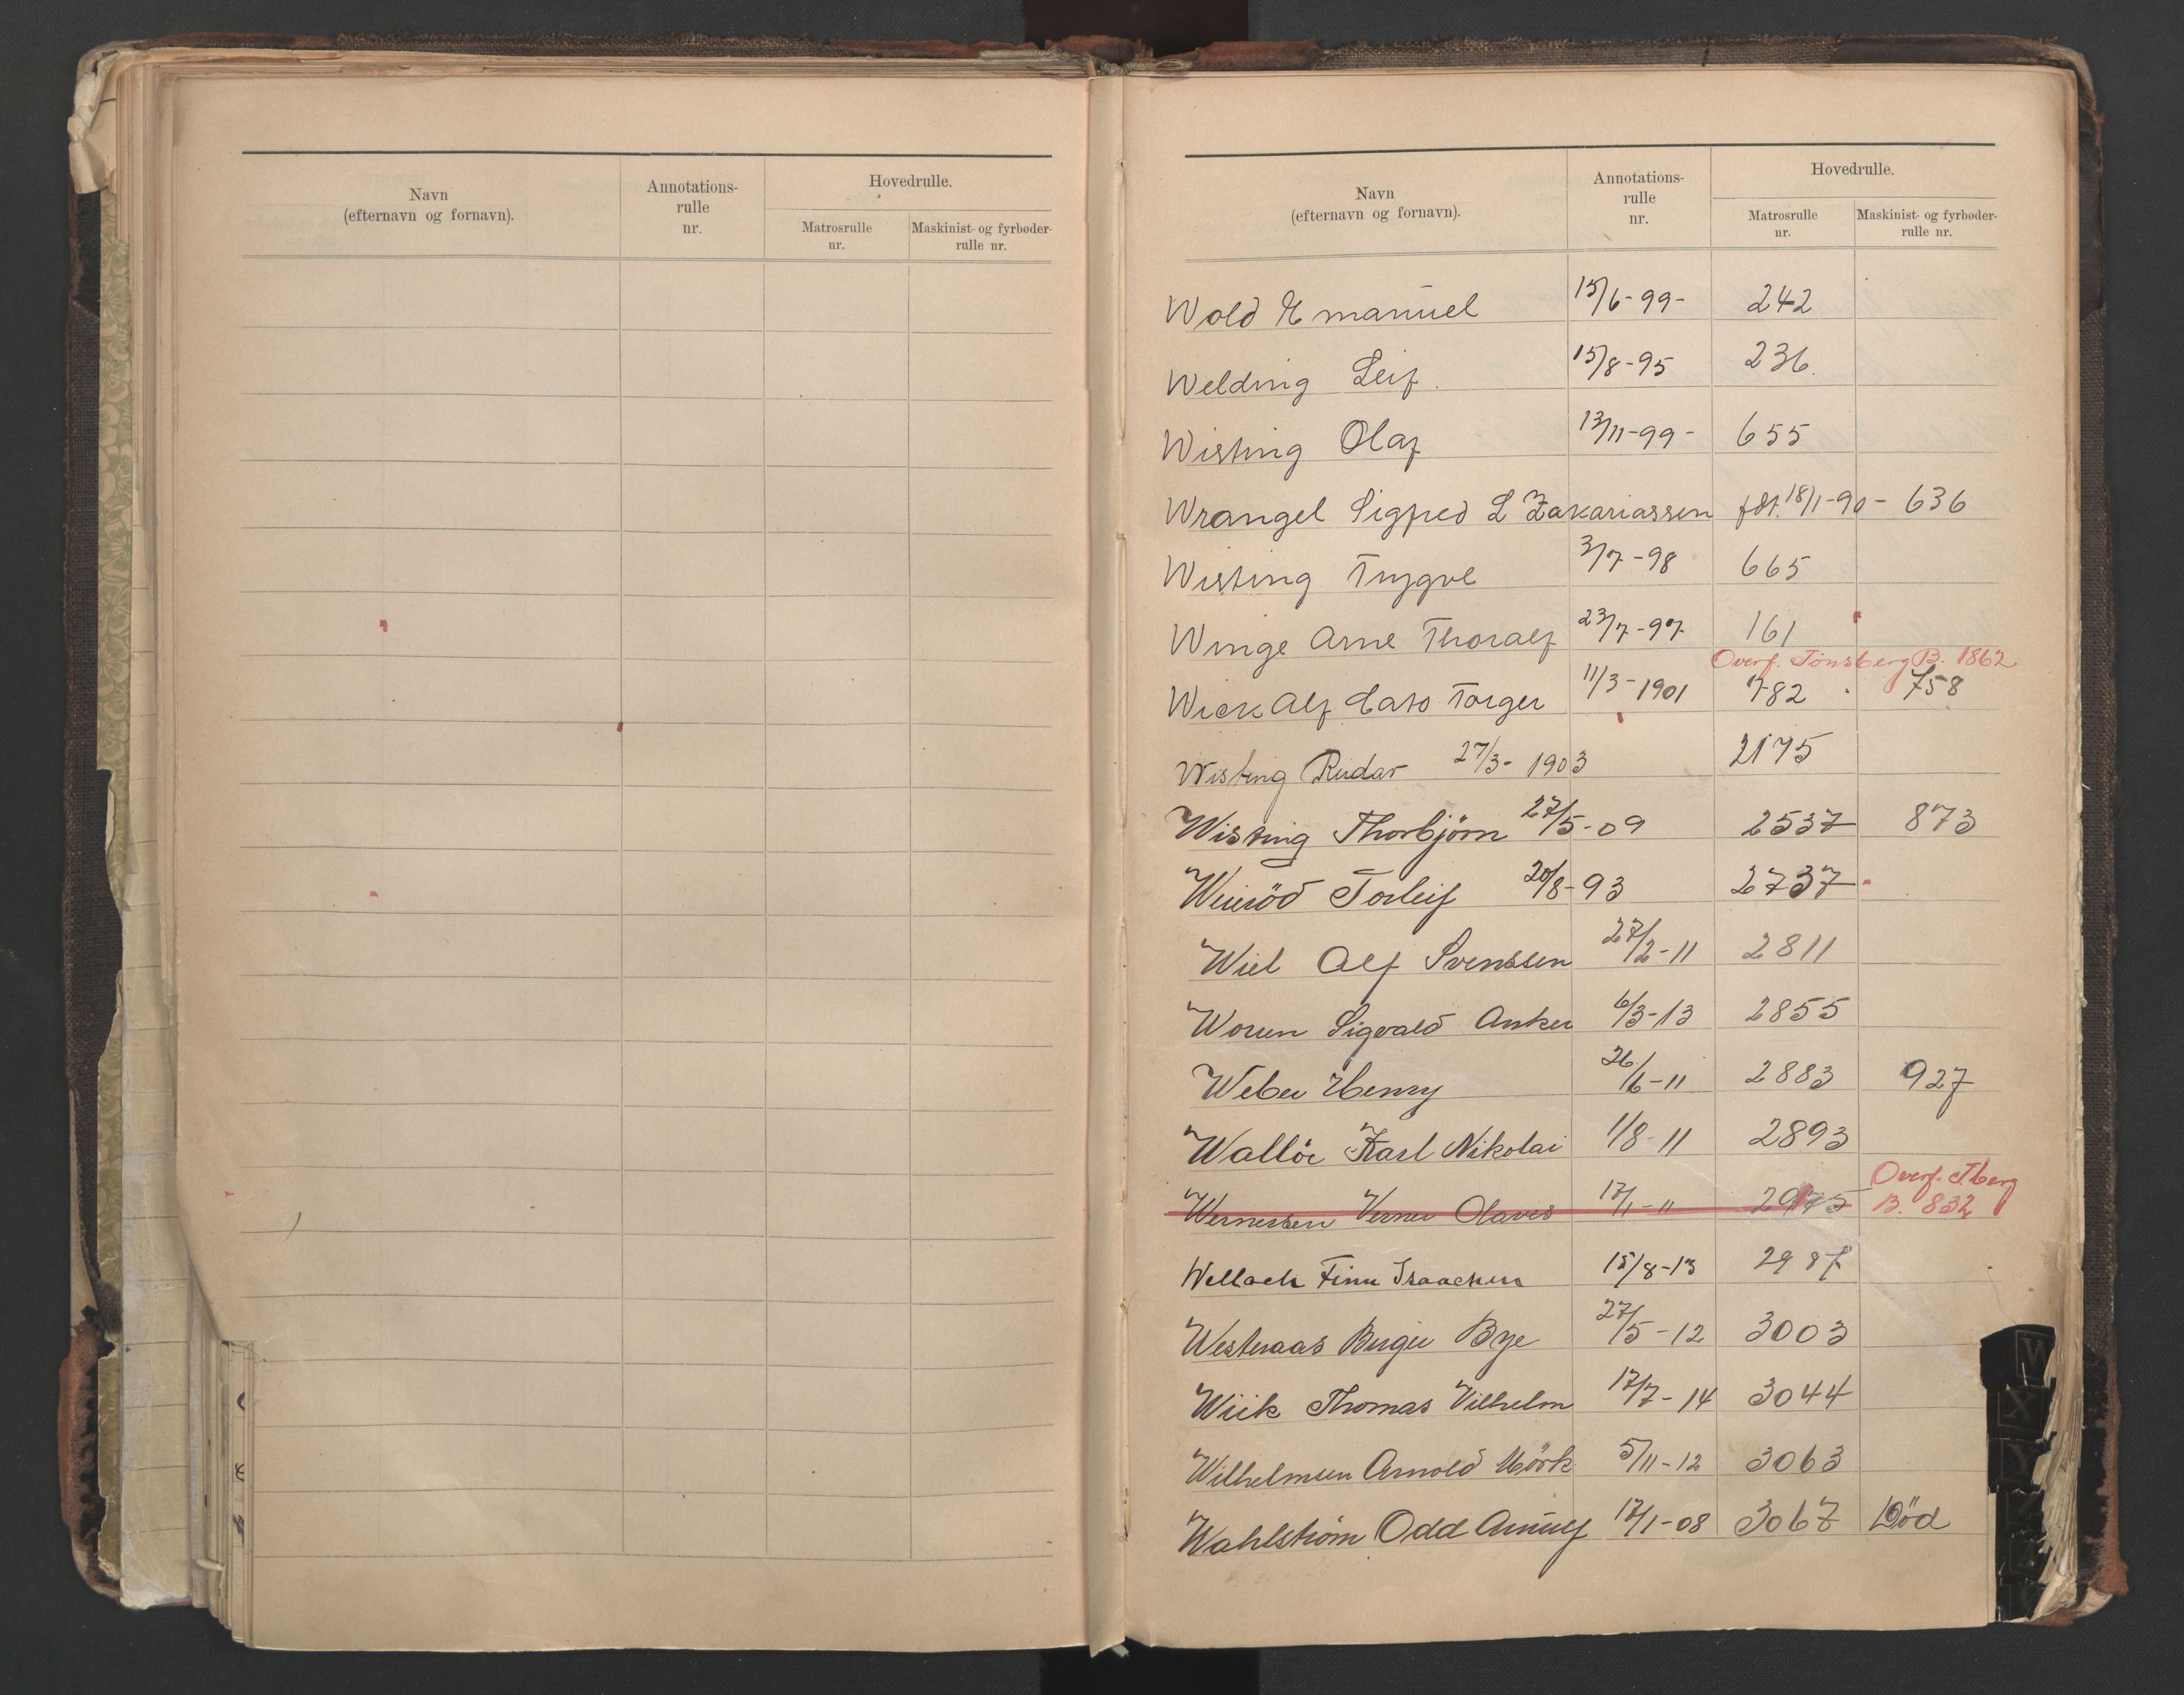 Navn
(efternavn og fornavn).
Annotations-
rulle
nr.
Hovedrulle.
Matrosrulle
nr.
Maskinist- og fyrbøder-
rulle nr.
Navn
(efternavn og fornavn).
Annotations-
rulle
nr.
Hovedrulle.
Matrosrulle
nr.
Maskinist- og fyrbøder-
rulle nr.
Wold Emanuel 15/6-99- 242
Welding Leif. 15/8-95 236.
Wisting Olaf 13/11-99- 655
Wrangel Sigfred L Zakariassen fdt. 18/1-90- 636
Wisting Trygve 3/7-98 665
Winge Arne Thoralf 23/7-97 161
Overf. Tönsberg B. 1862
Wick Alf Cato Torger 11/3-1901 782 758
Wisting Reidar 27/3-1903 2175
Wisting Thorbjörn 27/5-09 2537 873
Torleif 20/8-93 2737
Wiel Alf Svenssen 27/2-11 2811
Woren Sigvald Anker 6/3-13 2855
Weber Henry 26/6-11 2883 927
Wallöe Karl Nikolai 1/8-11 2893
Overf. Tberg
Wernersen Verner Olaves 17/1-11 2975 B. 832
Wellach Finn Isaachsen 15/8-13 2987
Westeraas Birger Bye 27/5-12 3003
Wiik Thomas Vilhelm 17/7-14 3044
Wilhelmsen Arnold Mörk 5/11-12 3063
Wahlström Odd Arnulf 17/1-08 3067 Död
W
X
Y